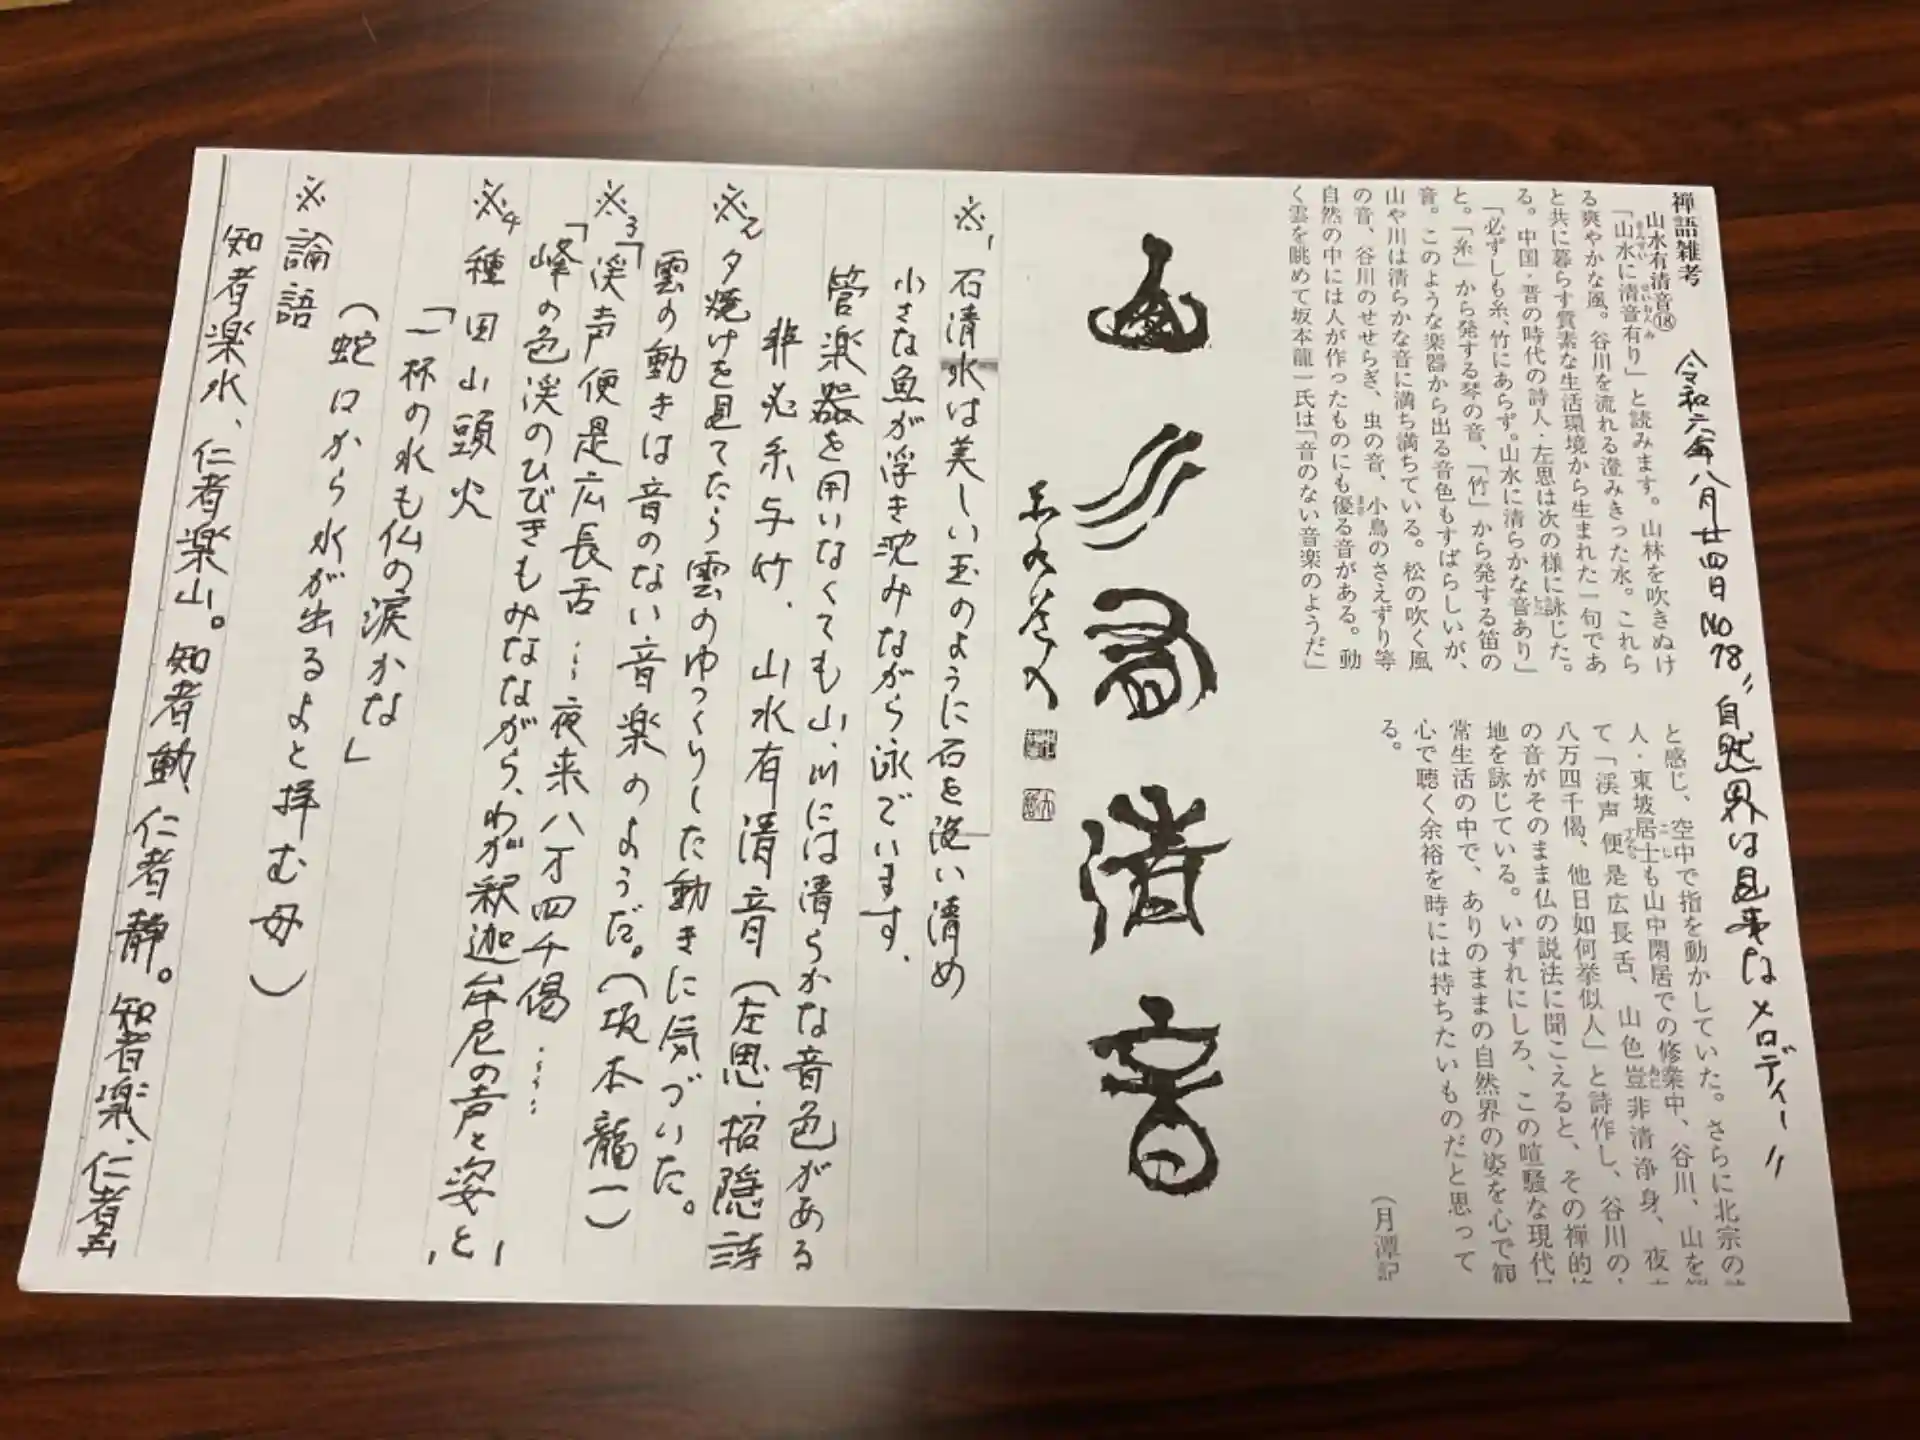 禅語雑考
山水有清音⑱
令和六年八月廿四日 No 18 "自然界は見事なメロディー"
「山水に清音有り」と読みます。山林を吹きぬけ
る爽やかな風。谷川を流れる澄みきった水。これら
と共に暮らす質素な生活環境から生まれた一句であ
る。中国・晋の時代の詩人・左思は次の様に詠じた。
「必ずしも糸、竹にあらず。山水に清らかな音あり」
と。「糸」から発する琴の音、「竹」から発する笛の
音。このような楽器から出る音色もすばらしいが、
山や川は清らかな音に満ち満ちている。松の吹く風
の音、谷川のせせらぎ、虫の音、小鳥のさえずり等
自然の中には人が作ったものにも優る音がある。動
く雲を眺めて坂本龍一氏は「音のない音楽のようだ」
と感じ、空中で指を動かしていた。さらに北宗の
人・東坡居士も山中閑居での修業中、谷川、山を
て「渓声便是広長舌、山色豈非清浄身、夜
八万四千偈、他日如何挙似人」と詩作し、谷川の
の音がそのまま仏の説法に聞こえると、その禅的
地を詠じている。いずれにしろ、この喧騒な現代
常生活の中で、ありのままの自然界の姿を心で
心で聴く余裕を時には持ちたいものだと思って
る。
（月潭記
山水有清音
※1 石清水は美しい玉のように石を洗い清め
小さな魚が浮き沈みながら泳でいます。
管楽器を用いなくても山、川には清らかな音色がある
非必糸与竹、山水有清音（左思、招隠詩
※2 夕焼けを見てたら雲のゆっくりした動きに気づいた。
雲の動きは音のない音楽のようだ。（坂本龍一）
※3「渓声便是広長舌…夜来八万四千偈……
「峰の色渓のひびきもみなながら、わが釈迦牟尼の声と姿と」
※4 種田山頭火
「一杯の水も仏の涙かな」
（蛇口から水が出るよと拝む母）
※ 論語
知者楽水、仁者楽山。知者動 仁者静。知者楽、仁者寿